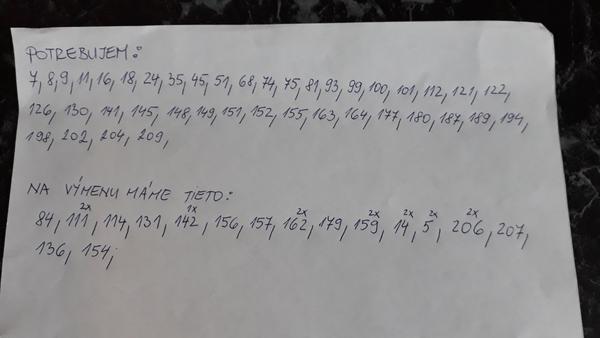 POTREBUJEM:
7, 8, 9, 11, 16, 18, 24, 35, 45, 51, 68, 74, 75, 81, 93, 99, 100, 101, 112, 121, 122,
126, 130, 141, 145, 148, 149, 151, 152, 155, 163, 164, 177, 180, 187, 189, 194,
198, 202, 204, 209,
NA VÝMENU MÁME TIETO:
2x 1x 2x 2x 2x 2x 2x
84, 111, 114, 131, 142, 156, 157, 162, 179, 159, 14, 5, 206, 207,
136, 154;